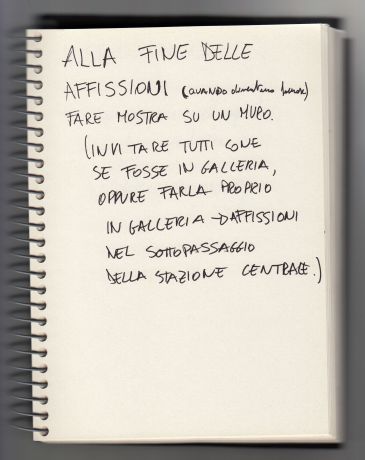 ALLA FINE DELLE
AFFISSIONI (QUANDO diventano
FARE MOSTRA SU UN MURO.
(INVITARE TUTTI COME
SE FOSSE IN GALLERIA,
OPPURE FARLA PROPRIO
IN GALLERIA → AFFISSIONI
NEL SOTTOPASSAGGIO
DELLA STAZIONE CENTRALE.)